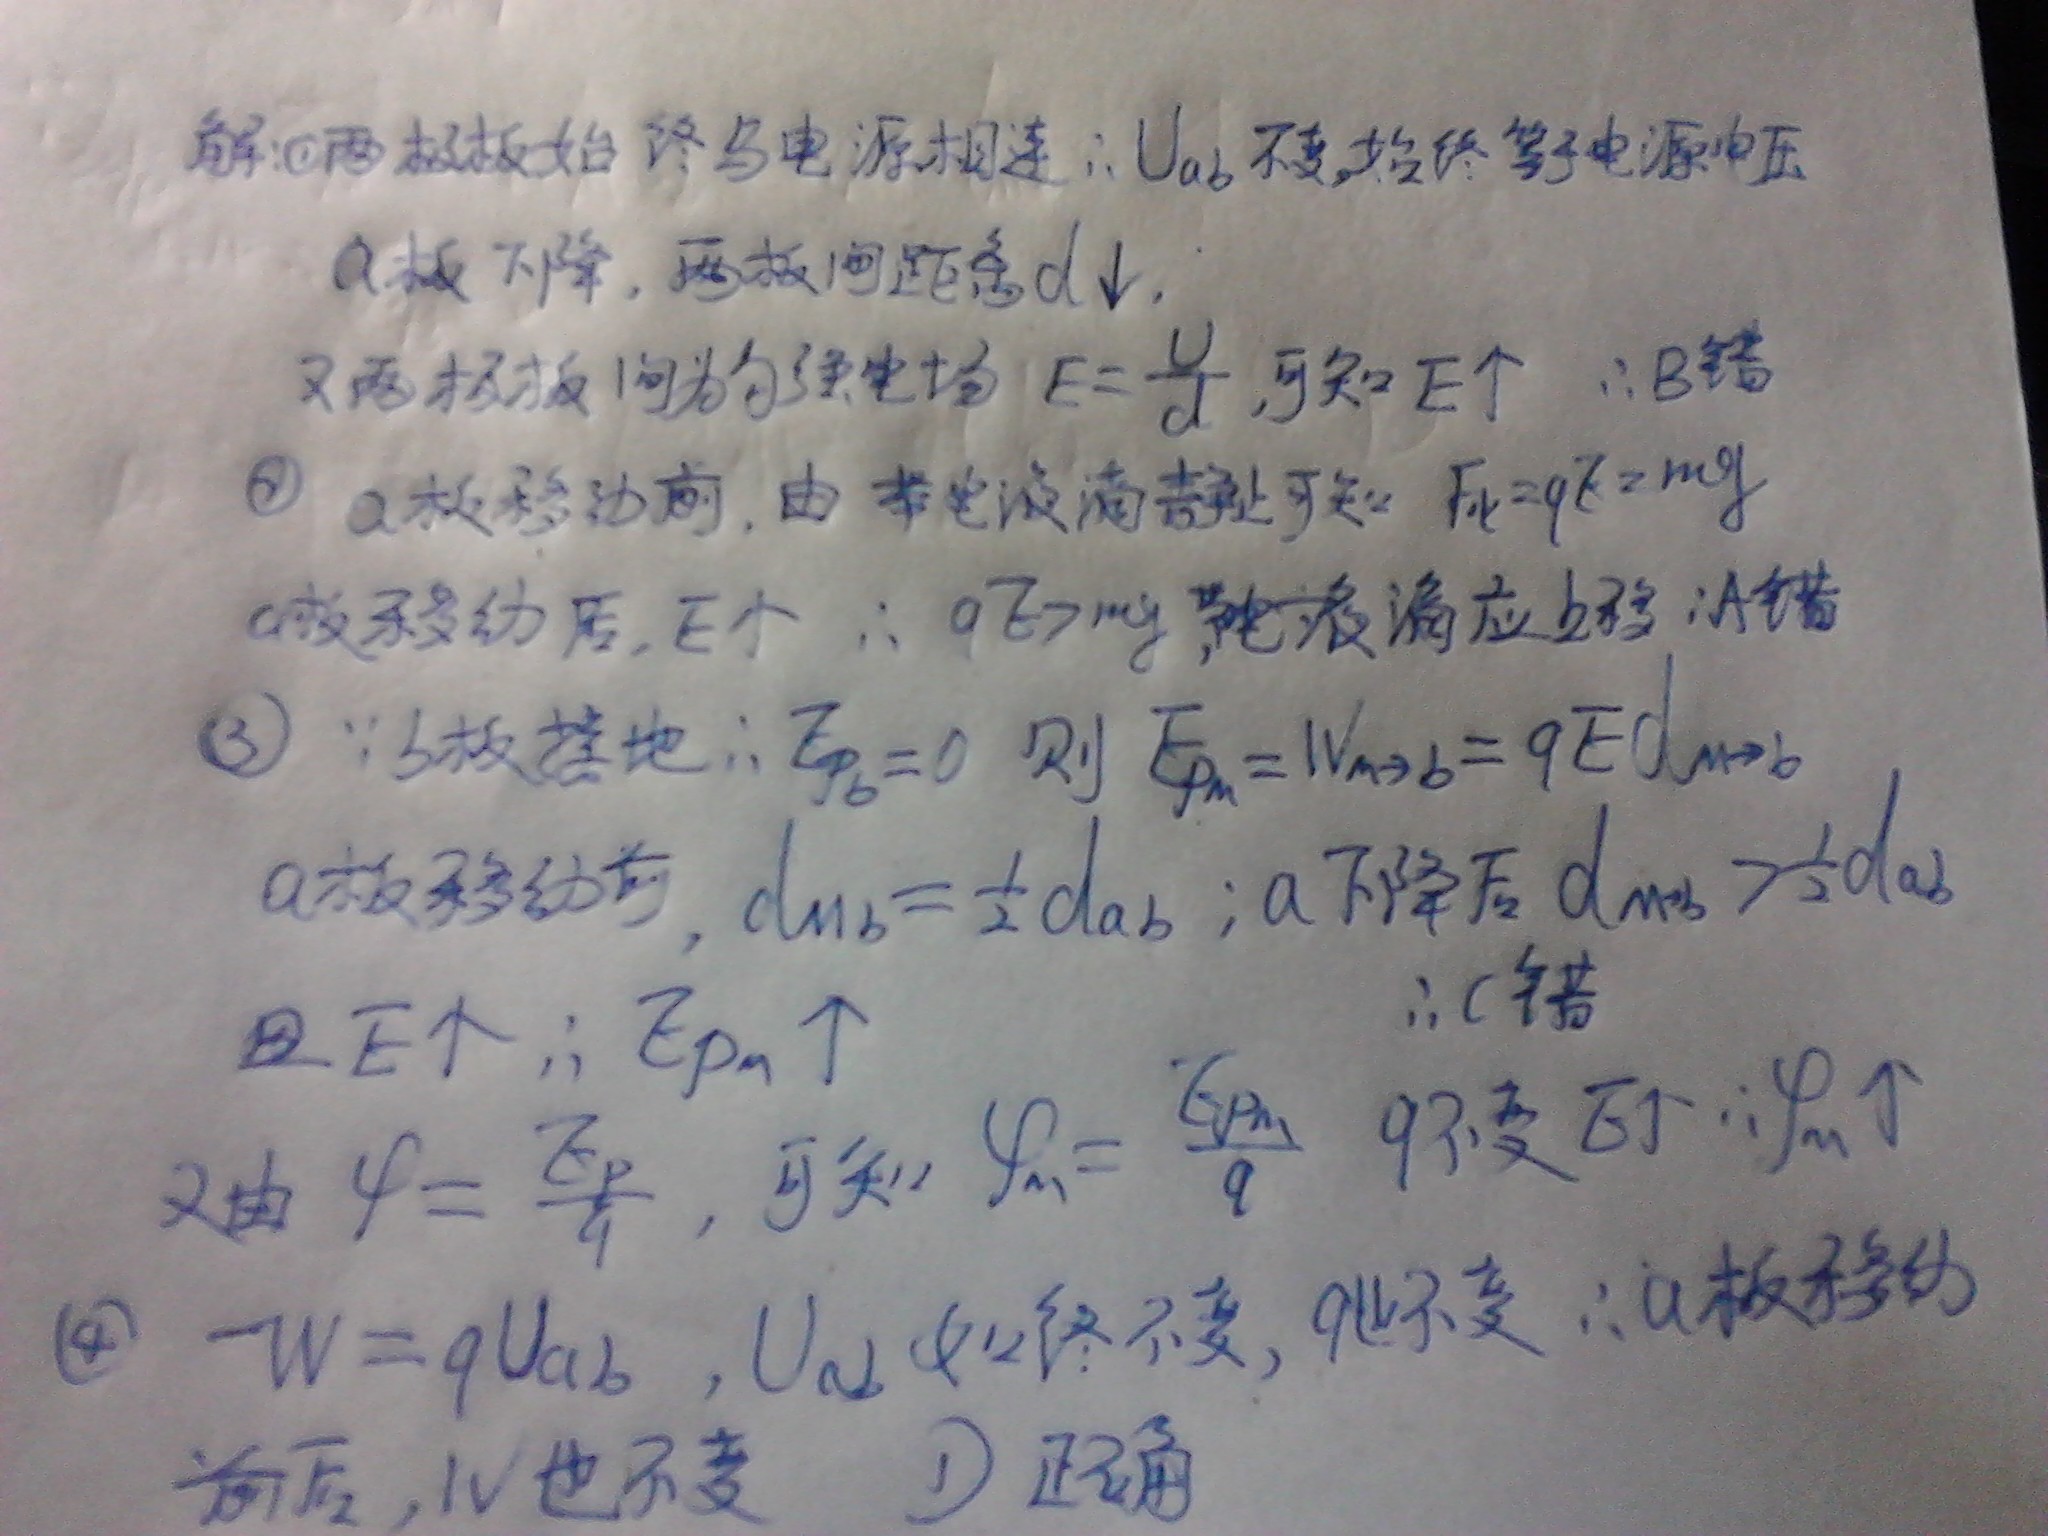 解:①两极板始终与电源相连∴Uab不变,始终等于电源电压
a板下降,两板间距离d↓.
又两极板间为匀强电场 E=U/d,可知E↑ ∴B错
② a板移动前,由带电液滴静止可知 F电=qE=mg
a板移动后,E↑ ∴ qE>mg,带电液滴应上移∴A错
③ ∵b板接地∴Epb=0 则 Epm=Wm→b=qEdm→b
a板移动前,dMb=1/2dab;a下降后dM→b>1/2dab
且E↑∴Epm↑ ∴C错
又由φ=Ep/q,可知φm=Epm/q q不变E↑∴φm↑
④ W=qUab,Uab始终不变,q也不变∴a板移动
前后,W也不变 D正确